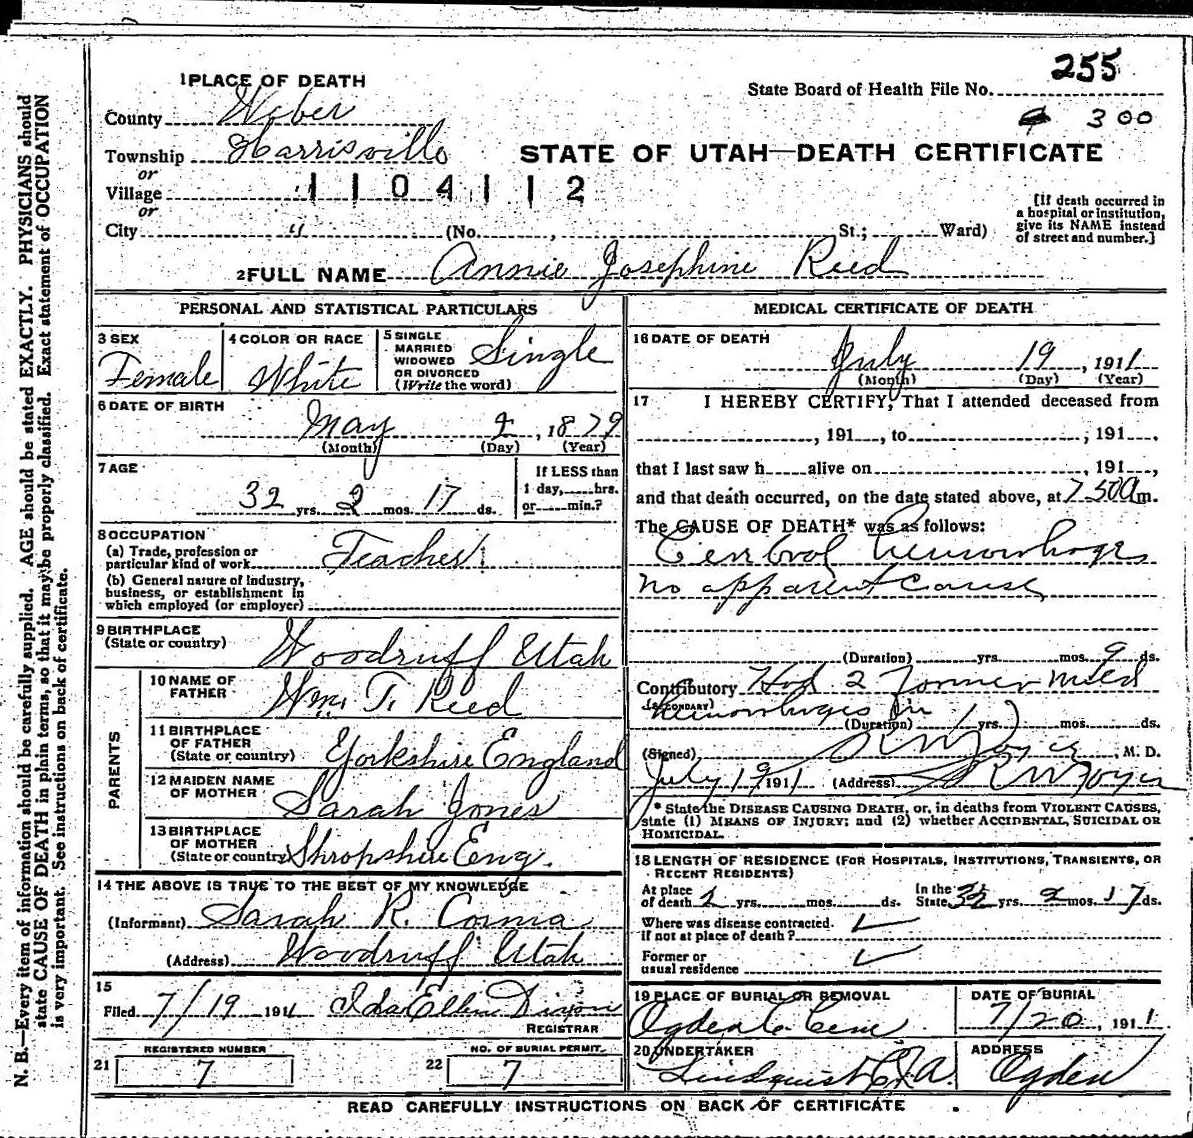 255
1 PLACE OF DEATH
State Board of Health File No.
County Weber
300
Township Harrisville
STATE OF UTAH—DEATH CERTIFICATE
or
Village " 1104112
or
City " (No. , St.; Ward)
[If death occurred in a hospital or institution, give its NAME instead of street and number.]
2 FULL NAME Annie Josephine Reed
PERSONAL AND STATISTICAL PARTICULARS
3 SEX
Female
4 COLOR OR RACE
White
5 SINGLE
MARRIED
WIDOWED
OR DIVORCED
(Write the word)
Single
6 DATE OF BIRTH
May 2, 1879
(Month) (Day) (Year)
7 AGE
32 yrs. 2 mos. 17 ds.
If LESS than
1 day, hrs.
or min.?
8 OCCUPATION
(a) Trade, profession or
particular kind of work Teacher
(b) General nature of industry,
business, or establishment in
which employed (or employer)
9 BIRTHPLACE
(State or country) Woodruff Utah
PARENTS
10 NAME OF
FATHER Wm. T. Reed
11 BIRTHPLACE
OF FATHER
(State or country) Yorkshire England
12 MAIDEN NAME
OF MOTHER Sarah Jones
13 BIRTHPLACE
OF MOTHER
(State or country) Shropshire Eng.
14 THE ABOVE IS TRUE TO THE BEST OF MY KNOWLEDGE
(Informant) Sarah R. Cornia
(Address) Woodruff Utah
15
Filed 7/19 1911 Ida Ellen Dixon
REGISTRAR
REGISTERED NUMBER
21 7
NO. OF BURIAL PERMIT.
22 7
MEDICAL CERTIFICATE OF DEATH
16 DATE OF DEATH
July 19, 1911
(Month) (Day) (Year)
17 I HEREBY CERTIFY, That I attended deceased from
, 191 , to , 191 .
that I last saw h alive on , 191 ,
and that death occurred, on the date stated above, at 7 50 a m.
The CAUSE OF DEATH* was as follows:
Cerebral hemorrhage
no apparent cause
(Duration) yrs. mos. 9 ds.
Contributory Had 2 former mild
(SECONDARY)
hemorrhages in
(Duration) 1 yrs. mos. ds.
(Signed) , M. D.
July 19 1911 (Address)
* State the DISEASE CAUSING DEATH, or, in deaths from VIOLENT CAUSES,
state (1) MEANS OF INJURY; and (2) whether ACCIDENTAL, SUICIDAL OR
HOMICIDAL.
18 LENGTH OF RESIDENCE (FOR HOSPITALS, INSTITUTIONS, TRANSIENTS, OR
RECENT RESIDENTS)
At place
of death yrs. mos. ds.
In the
State 32 yrs. 2 mos. 17 ds.
Where was disease contracted.
if not at place of death?
Former or
usual residence
19 PLACE OF BURIAL OR REMOVAL
Ogden Cem
DATE OF BURIAL
7/20, 1911
20 UNDERTAKER
Lindquist
ADDRESS
Ogden
READ CAREFULLY INSTRUCTIONS ON BACK OF CERTIFICATE
N. B.—Every item of information should be carefully supplied. AGE should be stated EXACTLY. PHYSICIANS should
state CAUSE OF DEATH in plain terms, so that it may be properly classified. Exact statement of OCCUPATION
is very important. See instructions on back of certificate.